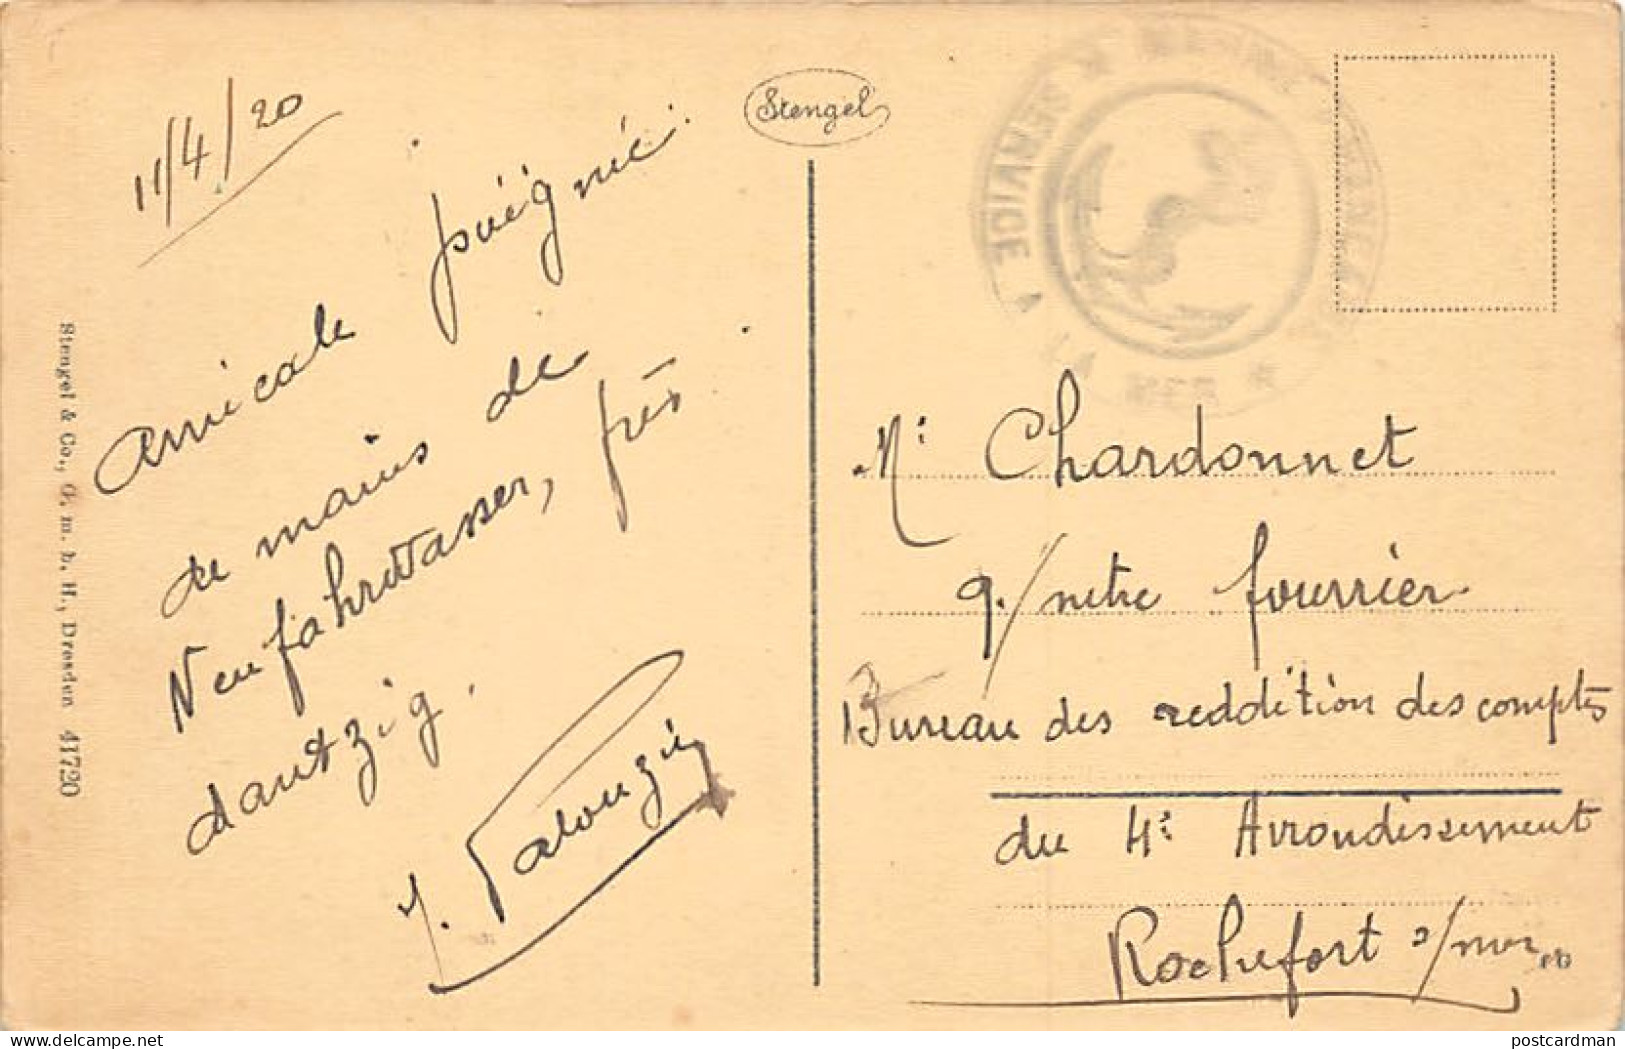 11/4/20
Amicale poignée
de mains de
Neufahrwasser, près
dantzig.
J. Palouzié
Stengel & Co., G. m. b. H., Dresden 41720
Stengel
MARINE FRANÇAISE ★ SERVICE A LA MER ★
Mr Chardonnet
q./ metre fourrier
Bureau des reddition des comptes
du 4e Arrondissement
Rochefort s/mer
postcardman